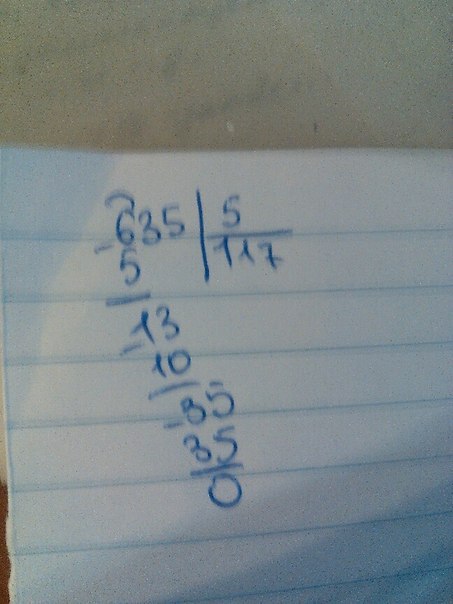 635 | 5
-5 117
-13
10
-35
35
0